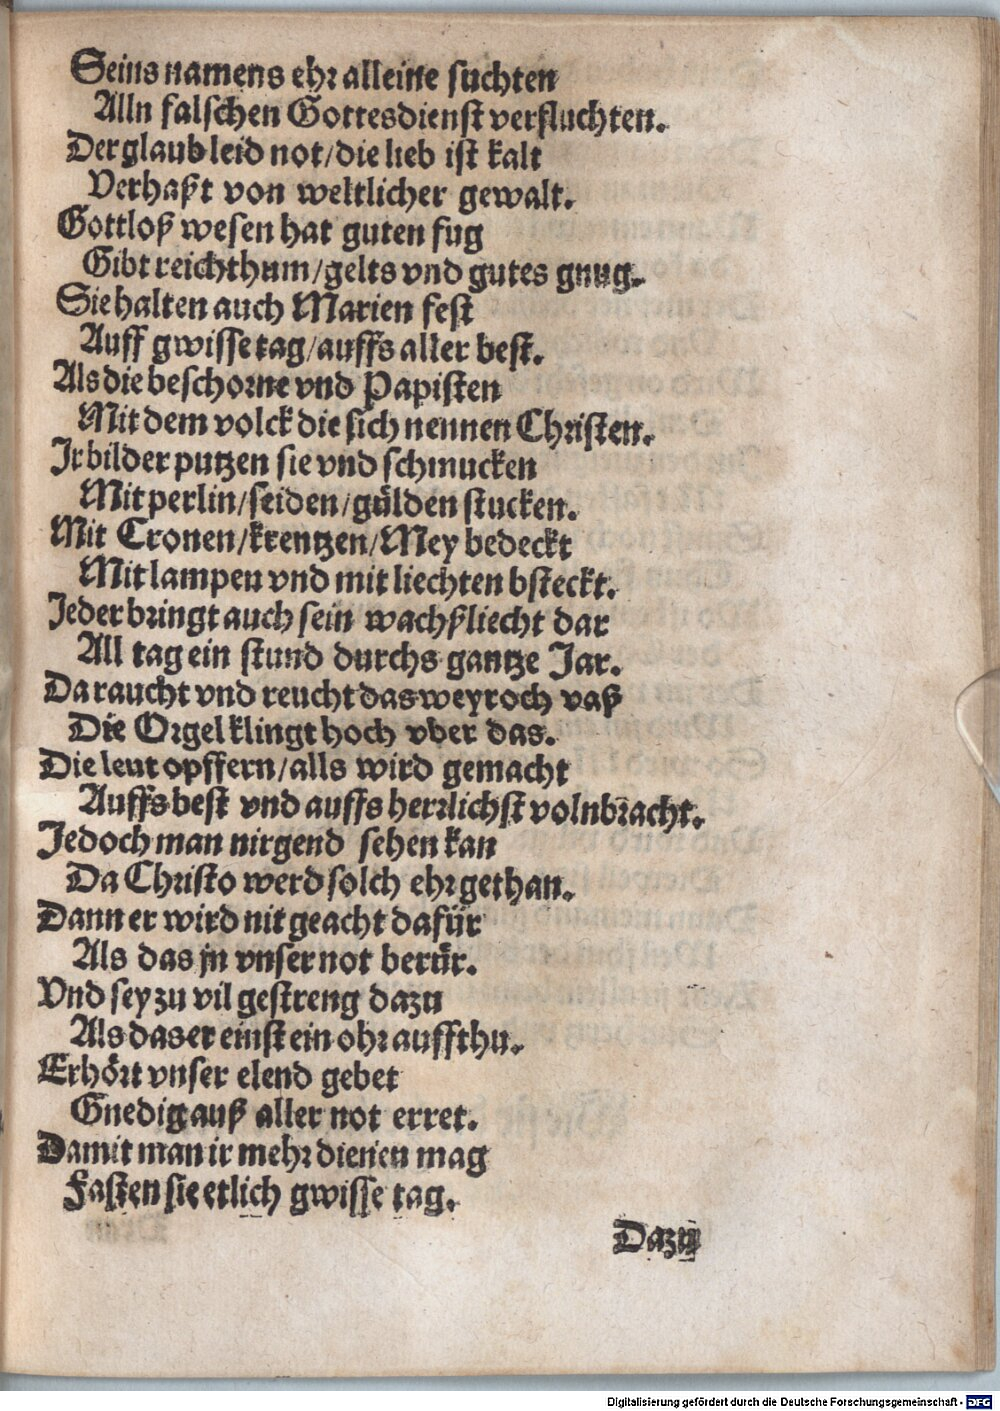 Seins namens ehr alleine suchten
Alln falschen Gottesdienst verfluchten.
Der glaub leid not/die lieb ist kalt
Verhaßt von weltlicher gewalt.
Gottloß wesen hat guten fug
Gibt reichthum/gelts vnd gutes gnug.
Sie halten auch Marien fest
Auff gwisse tag/auffs aller best.
Als die beschorne vnd Papisten
Mit dem volck die sich nennen Christen.
Ir bilder putzen sie vnd schmucken
Mit perlin/seiden/gülden stucken.
Mit Cronen/krentzen/Mey bedeckt
Mit lampen vnd mit liechten bsteckt.
Jeder bringt auch sein wachßliecht dar
All tag ein stund durchs gantze Jar.
Da raucht vnd reucht das weyroch vaß
Die Orgel klingt hoch vber das.
Die leut opffern/alls wird gemacht
Auffs best vnd auffs herrlichst volnbracht.
Jedoch man nirgend sehen kan
Da Christo werd solch ehr gethan.
Dann er wird nit geacht dafür
Als das jn vnser not berür.
Vnd sey zu vil gestreng dazu
Als das er einst ein ohr auffthu.
Erhört vnser elend gebet
Gnedig auß aller not erret.
Damit man ir mehr dienen mag
Fasten sie etlich gwisse tag.
Dazu
Digitalisierung gefördert durch die Deutsche Forschungsgemeinschaft - DFG